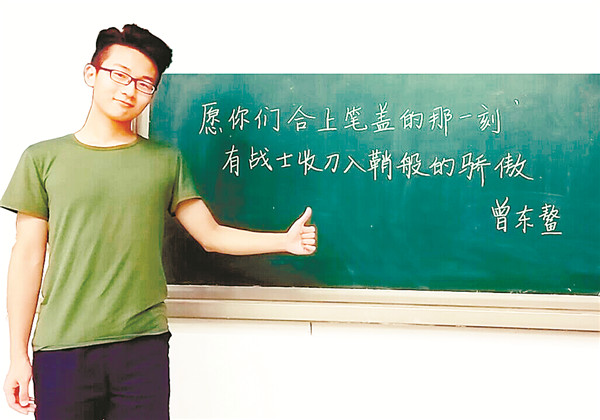 愿你们合上笔盖的那一刻,
有战士收刀入鞘般的骄傲
曾东鳌